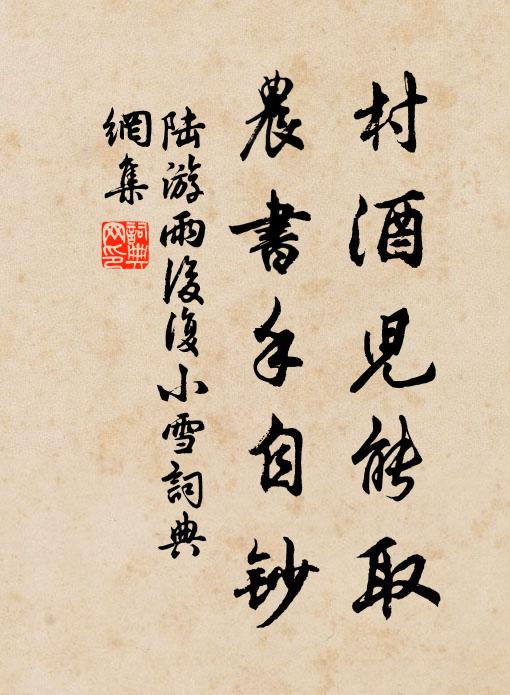 村酒兒能取
農書手自鈔
陸游雨後復小雪詞典
網集
詞典
网印